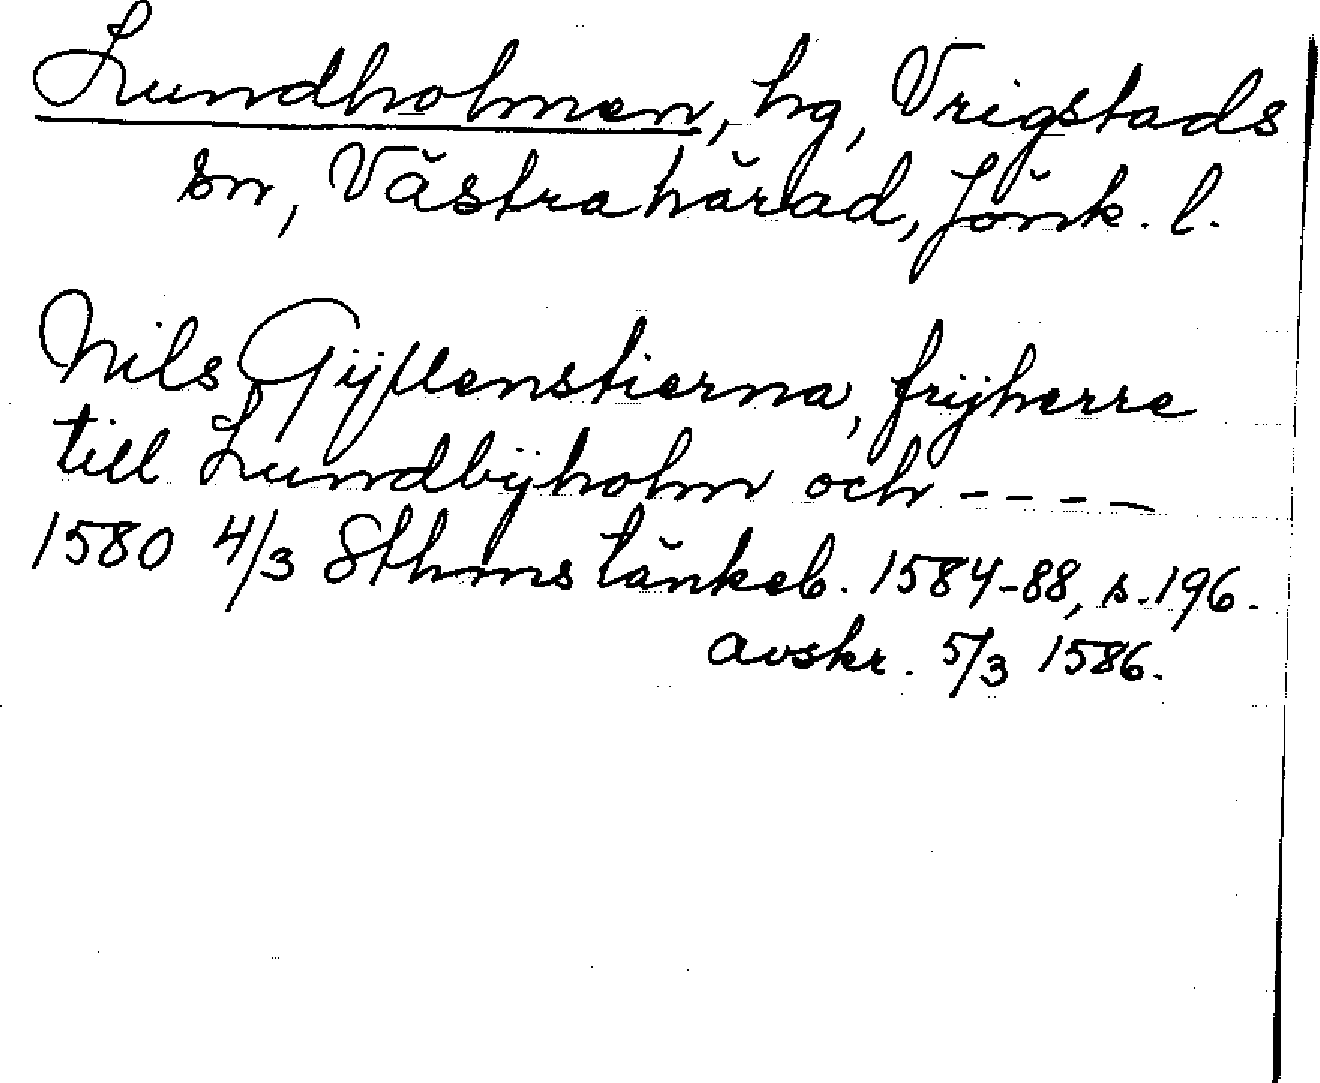 Lundholmen, hg, Vrigstads
sn, Västra härad, Jönk. l.
Nils Gÿllenstierna, frÿherre
till Lundbÿholm och - - - -
1580 4/3 Sthms tänkeb. 1584-88, s. 196.
avskr. 5/3 1586.